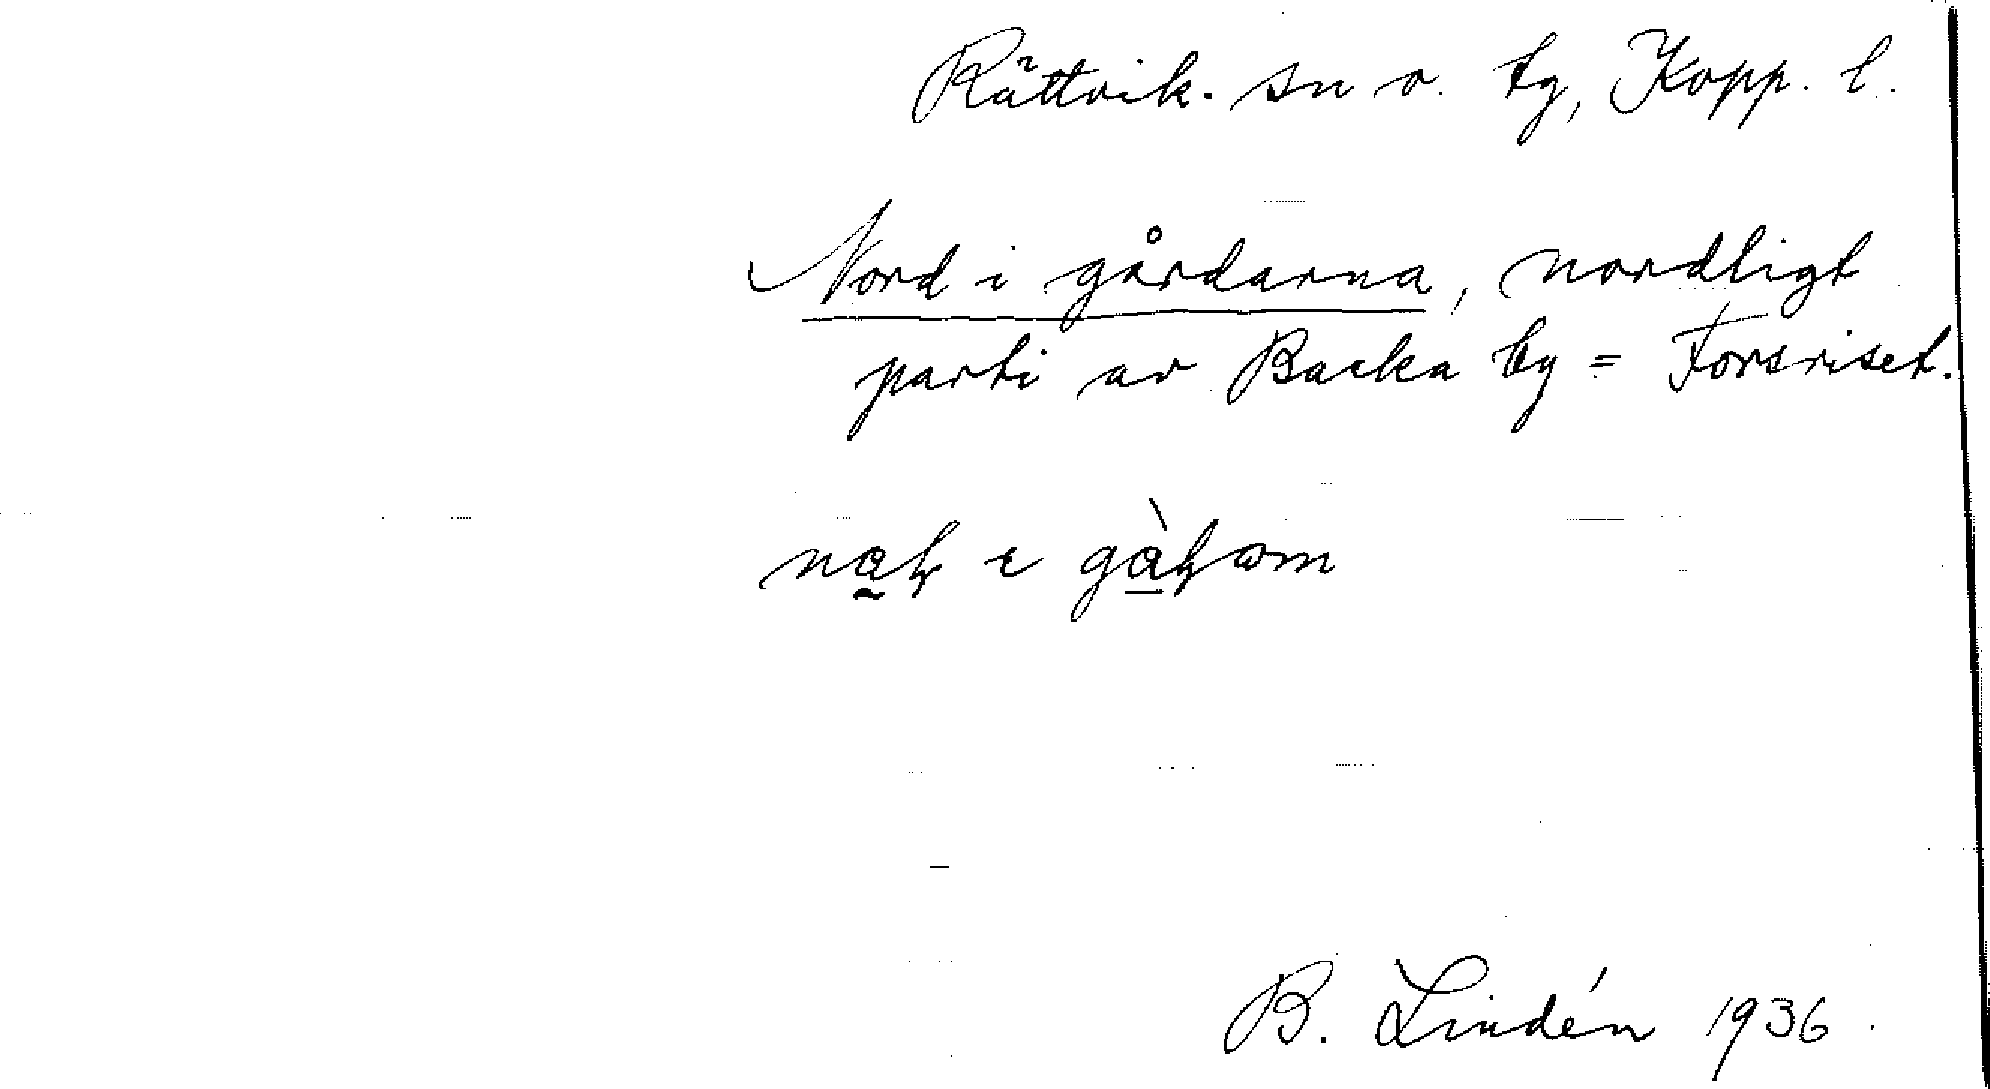 Rättvik. sn o. tg, Kopp. l.
Nord i gårdarna, nordligt
parti av Backa by = Forsriset.
B. Lindén 1936.